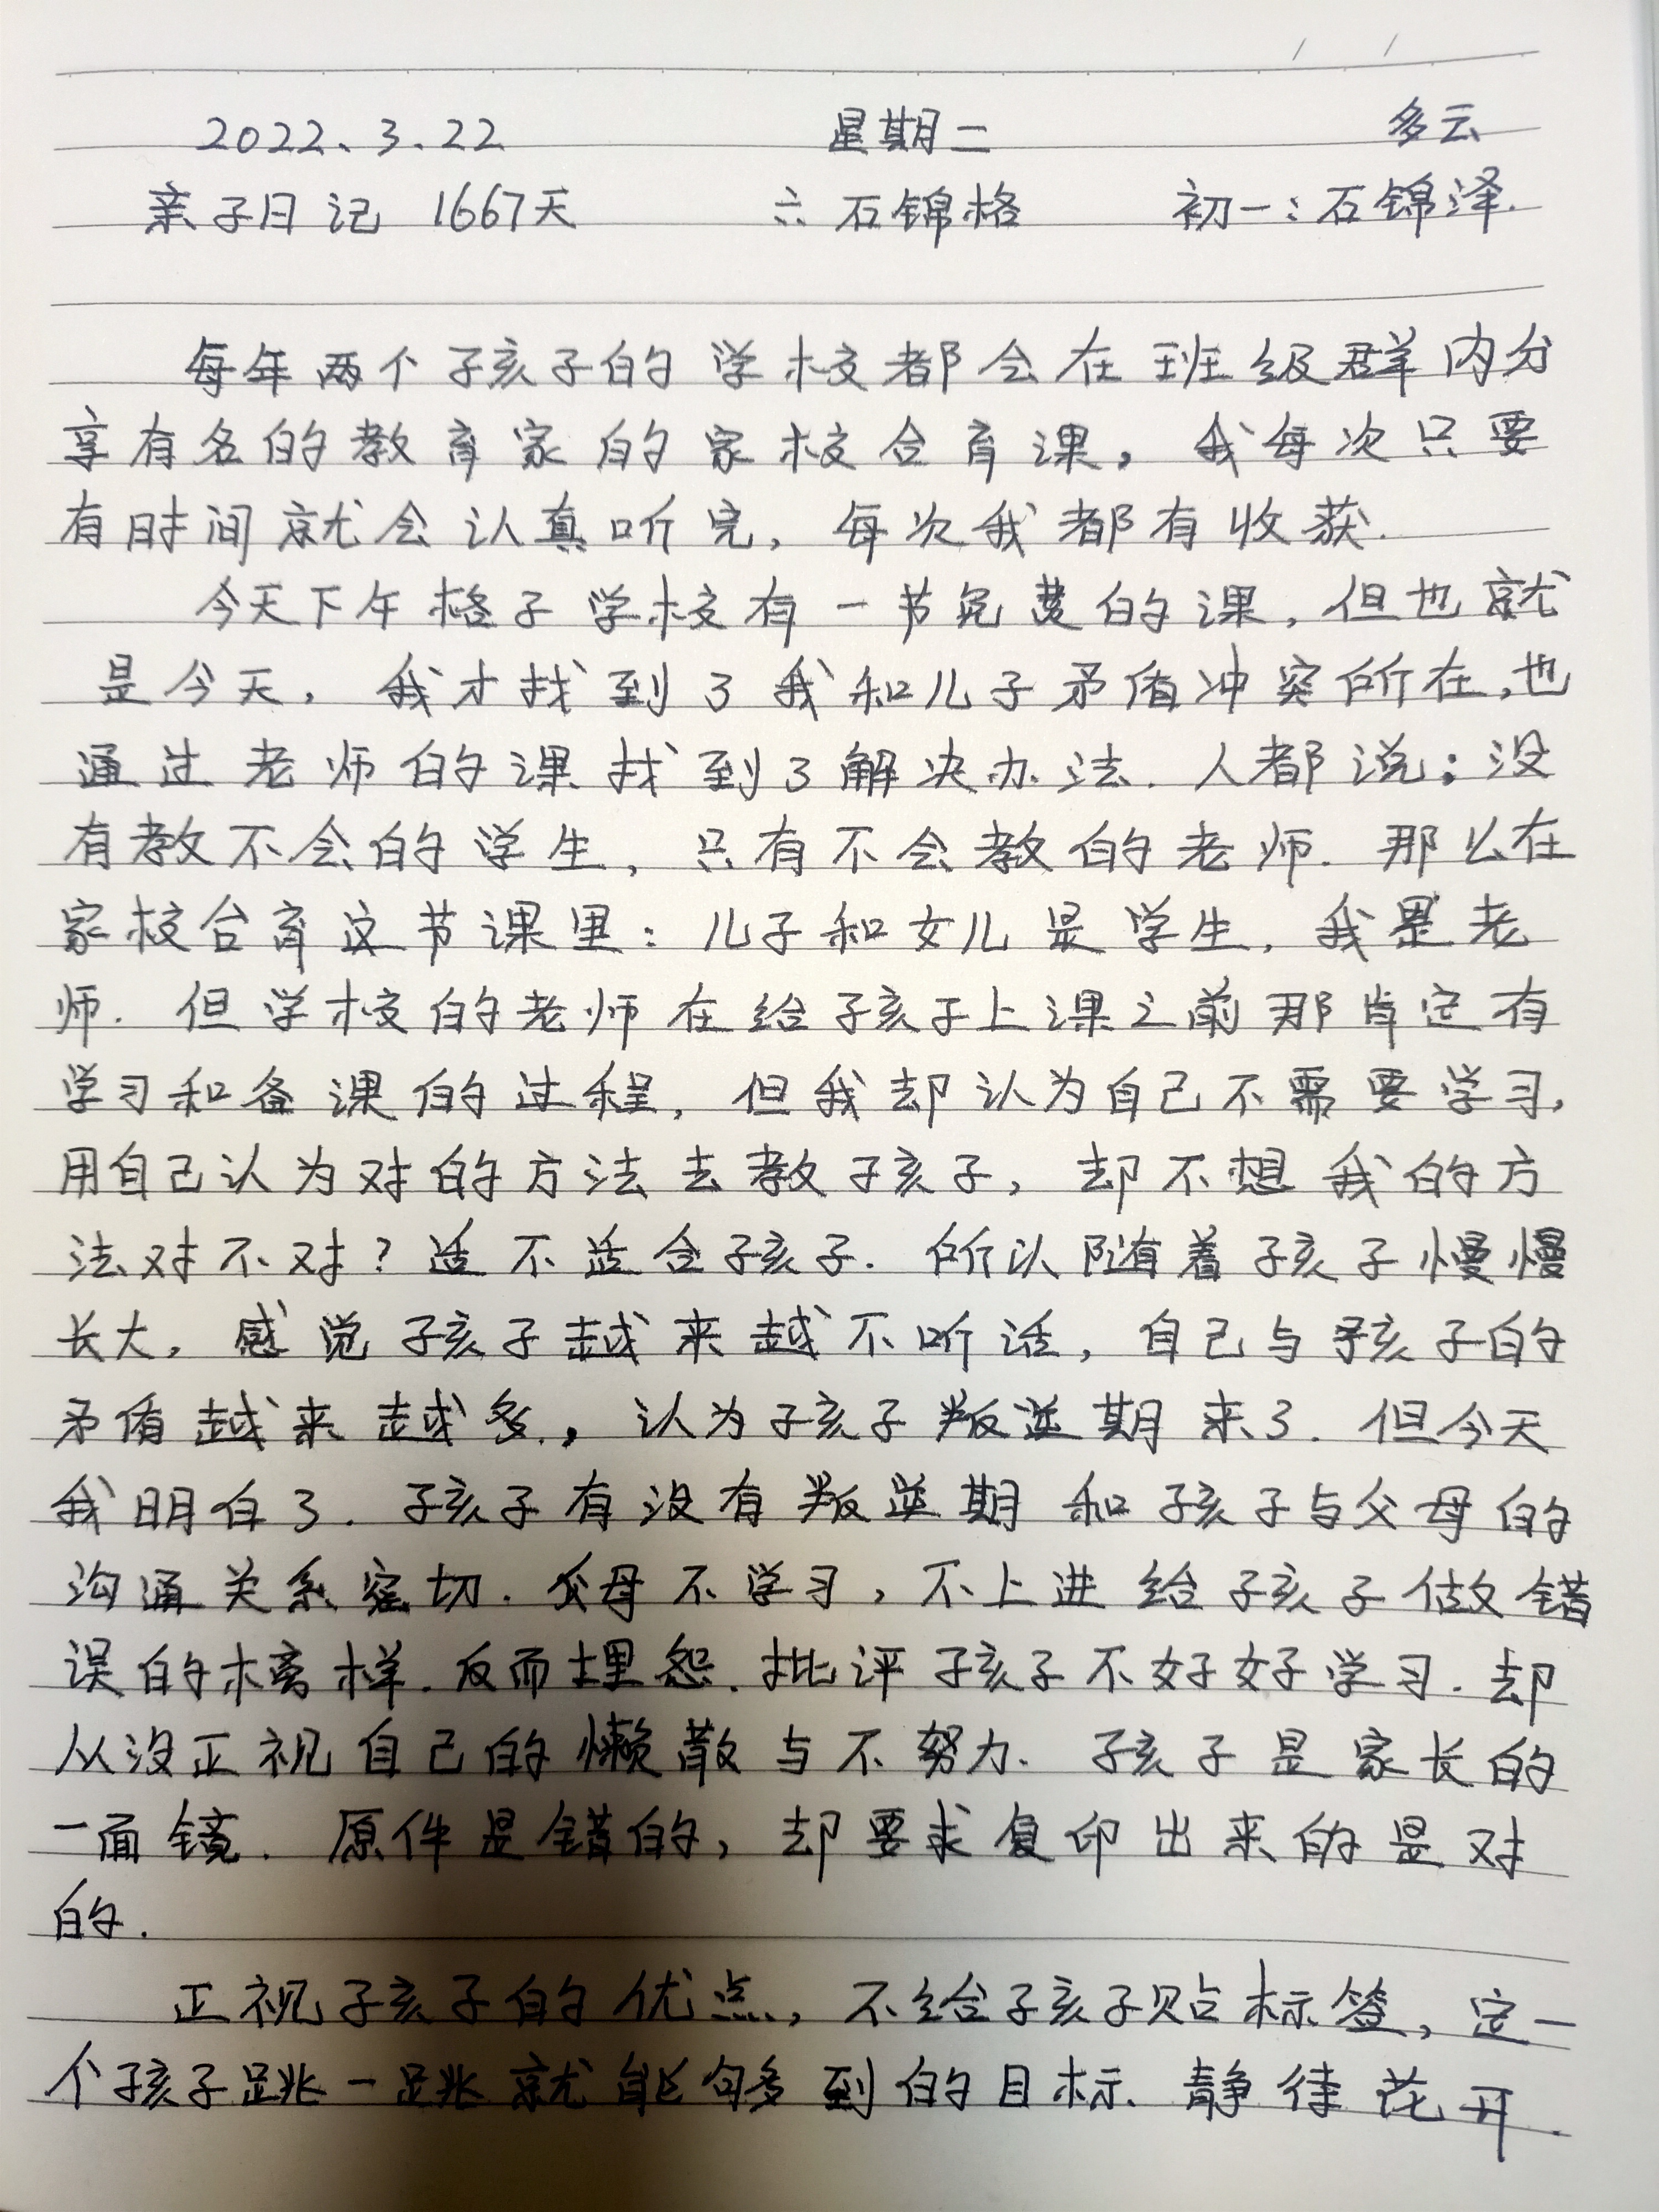 2022、3.22 星期二 多云
亲子日记 1667天 六 石锦格 初一:石锦泽.
每年两个孩子的学校都会在班级群内分
享有名的教育家的家校合育课,我每次只要
有时间就会认真听完,每次我都有收获.
今天下午格子学校有一节免费的课,但也就
是今天,我才找到了我和儿子矛盾冲突所在,也
通过老师的课找到了解决办法.人都说:没
有教不会的学生,只有不会教的老师.那么在
家校合育这节课里:儿子和女儿是学生,我是老
师.但学校的老师在给孩子上课之前那肯定有
学习和备课的过程,但我却认为自己不需要学习,
用自己认为对的方法去教孩子,却不想我的方
法对不对?适不适合孩子.所以随着孩子慢慢
长大,感觉孩子越来越不听话,自己与孩子的
矛盾越来越多.,认为孩子叛逆期来了.但今天
我明白了.孩子有没有叛逆期和孩子与父母的
沟通关系密切.父母不学习,不上进给孩子做错
误的榜样.反而埋怨.批评孩子不好好学习.却
从没正视自己的懒散与不努力.孩子是家长的
一面镜.原件是错的,却要求复印出来的是对
的.
正视孩子的优点,不给孩子贴标签,定一
个孩子跳一跳就能够到的目标.静待花开.